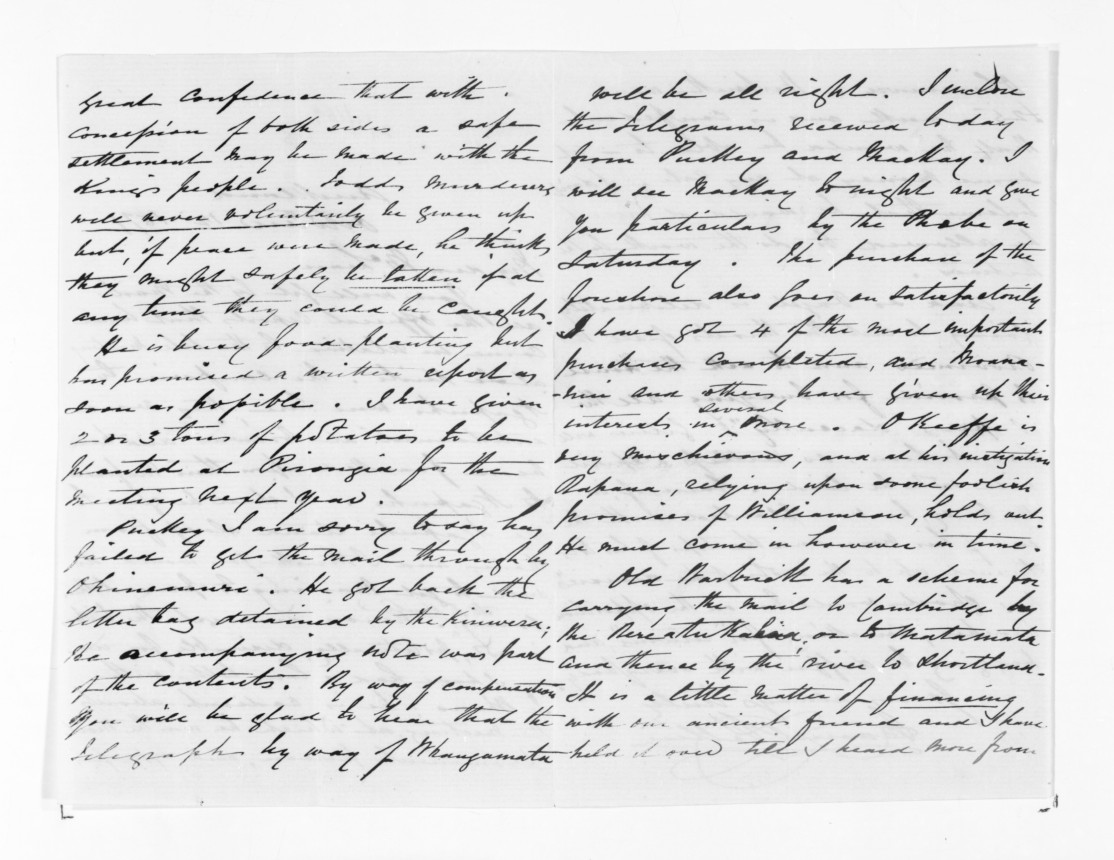 great confidence that with
concession of both sides a safe
settlement may be made with the
Kings people. Todds murderers
will never voluntarily be given up
but, if peace were made, he thinks
they might safely be taken if at
any time they could be caught.
He is busy food-planting but
has promised a written report as
soon as possible. I have given
2 or 3 tons of potatoes to be
planted at Pirongia for the
meeting next year.
Puckey I am sorry to say has
failed to get the mail through by
Ohinemuri. He got back the
letter bag detained by the
the accompanying note was part
of the contents. By way of compensation
you will be glad to hear that the
Telegraph by way of Whangamata
will be all right. I inclose
the Telegrams received today
from Puckey and Mackay. I
will see Mackay tonight and give
you particulars by the Phoebe on
Saturday. The purchase of the
foreshore also goes on satisfactorily
I have got 4 of the most important
purchases completed, and Moana-
-nui and others, have given up their
interests in several more. O'Keeffe is
very mischievous, and at his instigation
Rapana, relying upon some foolish
promises of Williamson, holds out.
He must come in however in time.
Old Warbrick has a scheme for
carrying the mail to Cambridge by
the or to Matamata
and thence by the river to Shortland.
It is a little matter of financing
with our ancient friend and I have
held it over till I heard more from